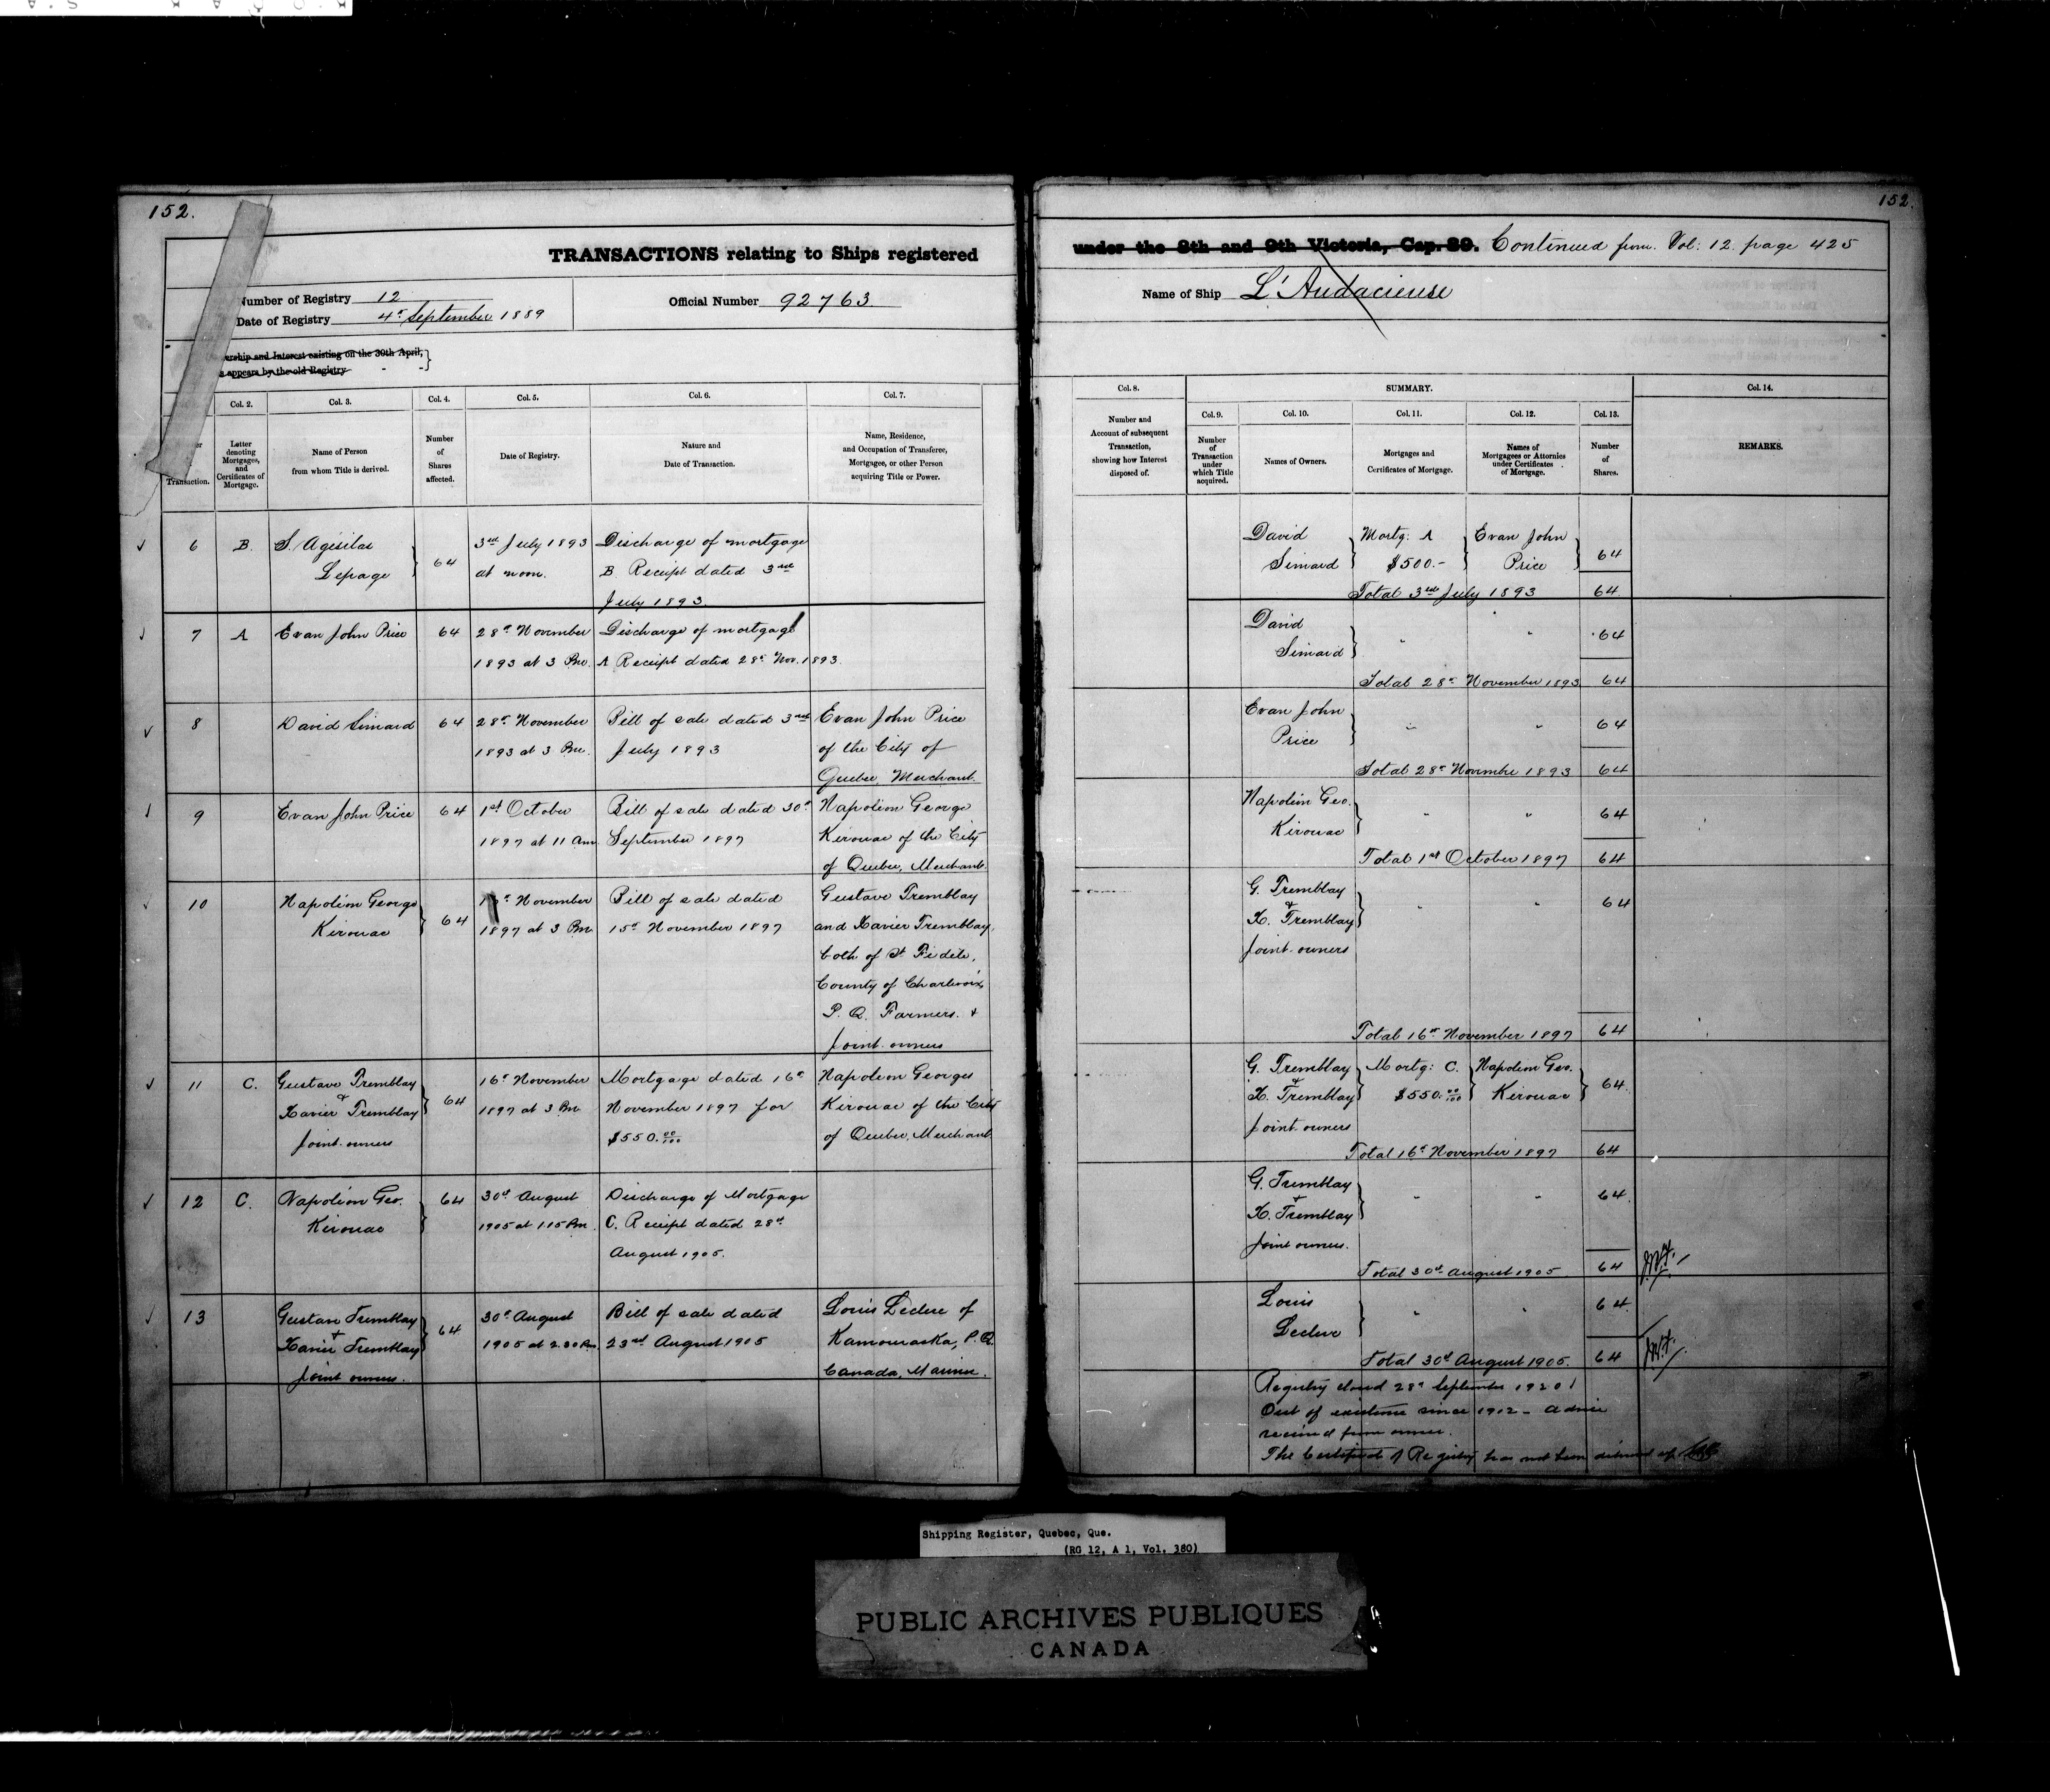 152.
TRANSACTIONS relating to Ships registered
Number of Registry 12
Date of Registry 4th September 1889
Official Number 92763
ership and Interest existing on the 30th April,
s appears by the old Registry
Transaction.
Col. 2.
Letter
denoting
Mortgages,
and
Certificates of
Mortgage.
Col. 3.
Name of Person
from whom Title is derived.
Col. 4.
Number
of
Shares
affected.
Col. 5.
Date of Registry.
Col. 6.
Nature and
Date of Transaction.
Col. 7.
Name, Residence,
and Occupation of Transferee,
Mortgagee, or other Person
acquiring Title or Power.
6
B.
S. Agésilas
Lepage
64
3rd July 1893
at noon.
Discharge of mortgage
B Receipt dated 3rd
July 1893.
7
A
Evan John Price
64
28th November
1893 at 3 Pm.
Discharge of mortgage
A Receipt dated 28th Nov. 1893.
8
David Simard
64
28th November
1893 at 3 Pm.
Bill of sale dated 3rd
July 1893
Evan John Price
of the City of
Quebec, Merchant.
9
Evan John Price
64
1st October
1897 at 11 Am.
Bill of sale dated 30th
September 1897
Napoléon George
Kirouac of the City
of Quebec, Merchant.
10
Napoléon George
Kirouac
64
November
1897 at 3 Pm
Bill of sale dated
15th November 1897
Gustave Tremblay
and Xavier Tremblay,
both of St Fidèle,
County of Charlevoix,
P. Q. Farmers. &
Joint owners
11
C.
Gustave Tremblay
&
Xavier Tremblay
Joint owners
64
16th November
1897 at 3 Pm
Mortgage dated 16th
November 1897 for
$550.00/100
Napoleon Georges
Kirouac of the City
of Quebec, Merchant
12
C.
Napoléon Geo.
Kirouac
64
30th August
1905 at 1.15 Pm.
Discharge of Mortgage
C. Receipt dated 28th
August 1905.
13
Gustave Tremblay
&
Xavier Tremblay
Joint owners.
64
30th August
1905 at 2.30 Pm.
Bill of sale dated
23rd August 1905
Louis Leclerc of
Kamouraska, P. Q.
Canada, Mariner.
152.
under the 8th and 9th Victoria, Cap. 89. Continued from Vol: 12. page 425
Name of Ship L'Audacieuse
Col. 8.
Number and
Account of subsequent
Transaction,
showing how Interest
disposed of.
SUMMARY.
Col. 9.
Number
of
Transaction
under
which Title
acquired.
Col. 10.
Names of Owners.
Col. 11.
Mortgages and
Certificates of Mortgage.
Col. 12.
Names of
Mortgagees or Attornies
under Certificates
of Mortgage.
Col. 13.
Number
of
Shares.
Col. 14.
REMARKS.
David
Simard
Mortg: A
$500.-
Evan John
Price
64
Total 3rd July 1893 64
David
Simard
" " 64
Total 28th November 1893 64
Evan John
Price
" " 64
Total 28th November 1893 64
Napoléon Geo.
Kirouac
" " 64
Total 1st October 1897 64
G. Tremblay
&
X. Tremblay
Joint owners
" " 64
Total 16th November 1897 64
G. Tremblay
&
X. Tremblay
Joint owners
Mortg: C.
$550.00/100
Napoléon Geo.
Kirouac
64
Total 16th November 1897 64
G. Tremblay
&
X. Tremblay
Joint owners.
" " 64
Total 30th August 1905 64
Louis
Leclerc
" " 64
Total 30th August 1905. 64
Registry closed 28th September 1920
Out of existence since 1912 - advice
received from owner.
The Certificate of Registry has not been delivered up
Shipping Register, Quebec, Que.
(RG 12, A 1, Vol. 380)
PUBLIC ARCHIVES PUBLIQUES
CANADA